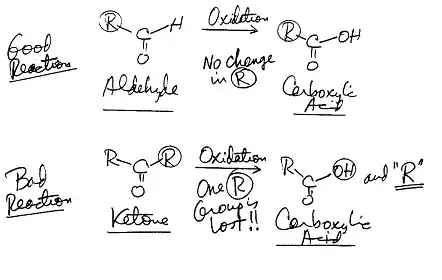 Good Reaction
R C H O
Aldehyde
Oxidation
No change in R
R C OH O
Carboxylic Acid
Bad Reaction
R C R O
Ketone
Oxidation
One R Group is Lost!!
R C OH O and "R"
Carboxylic Acid